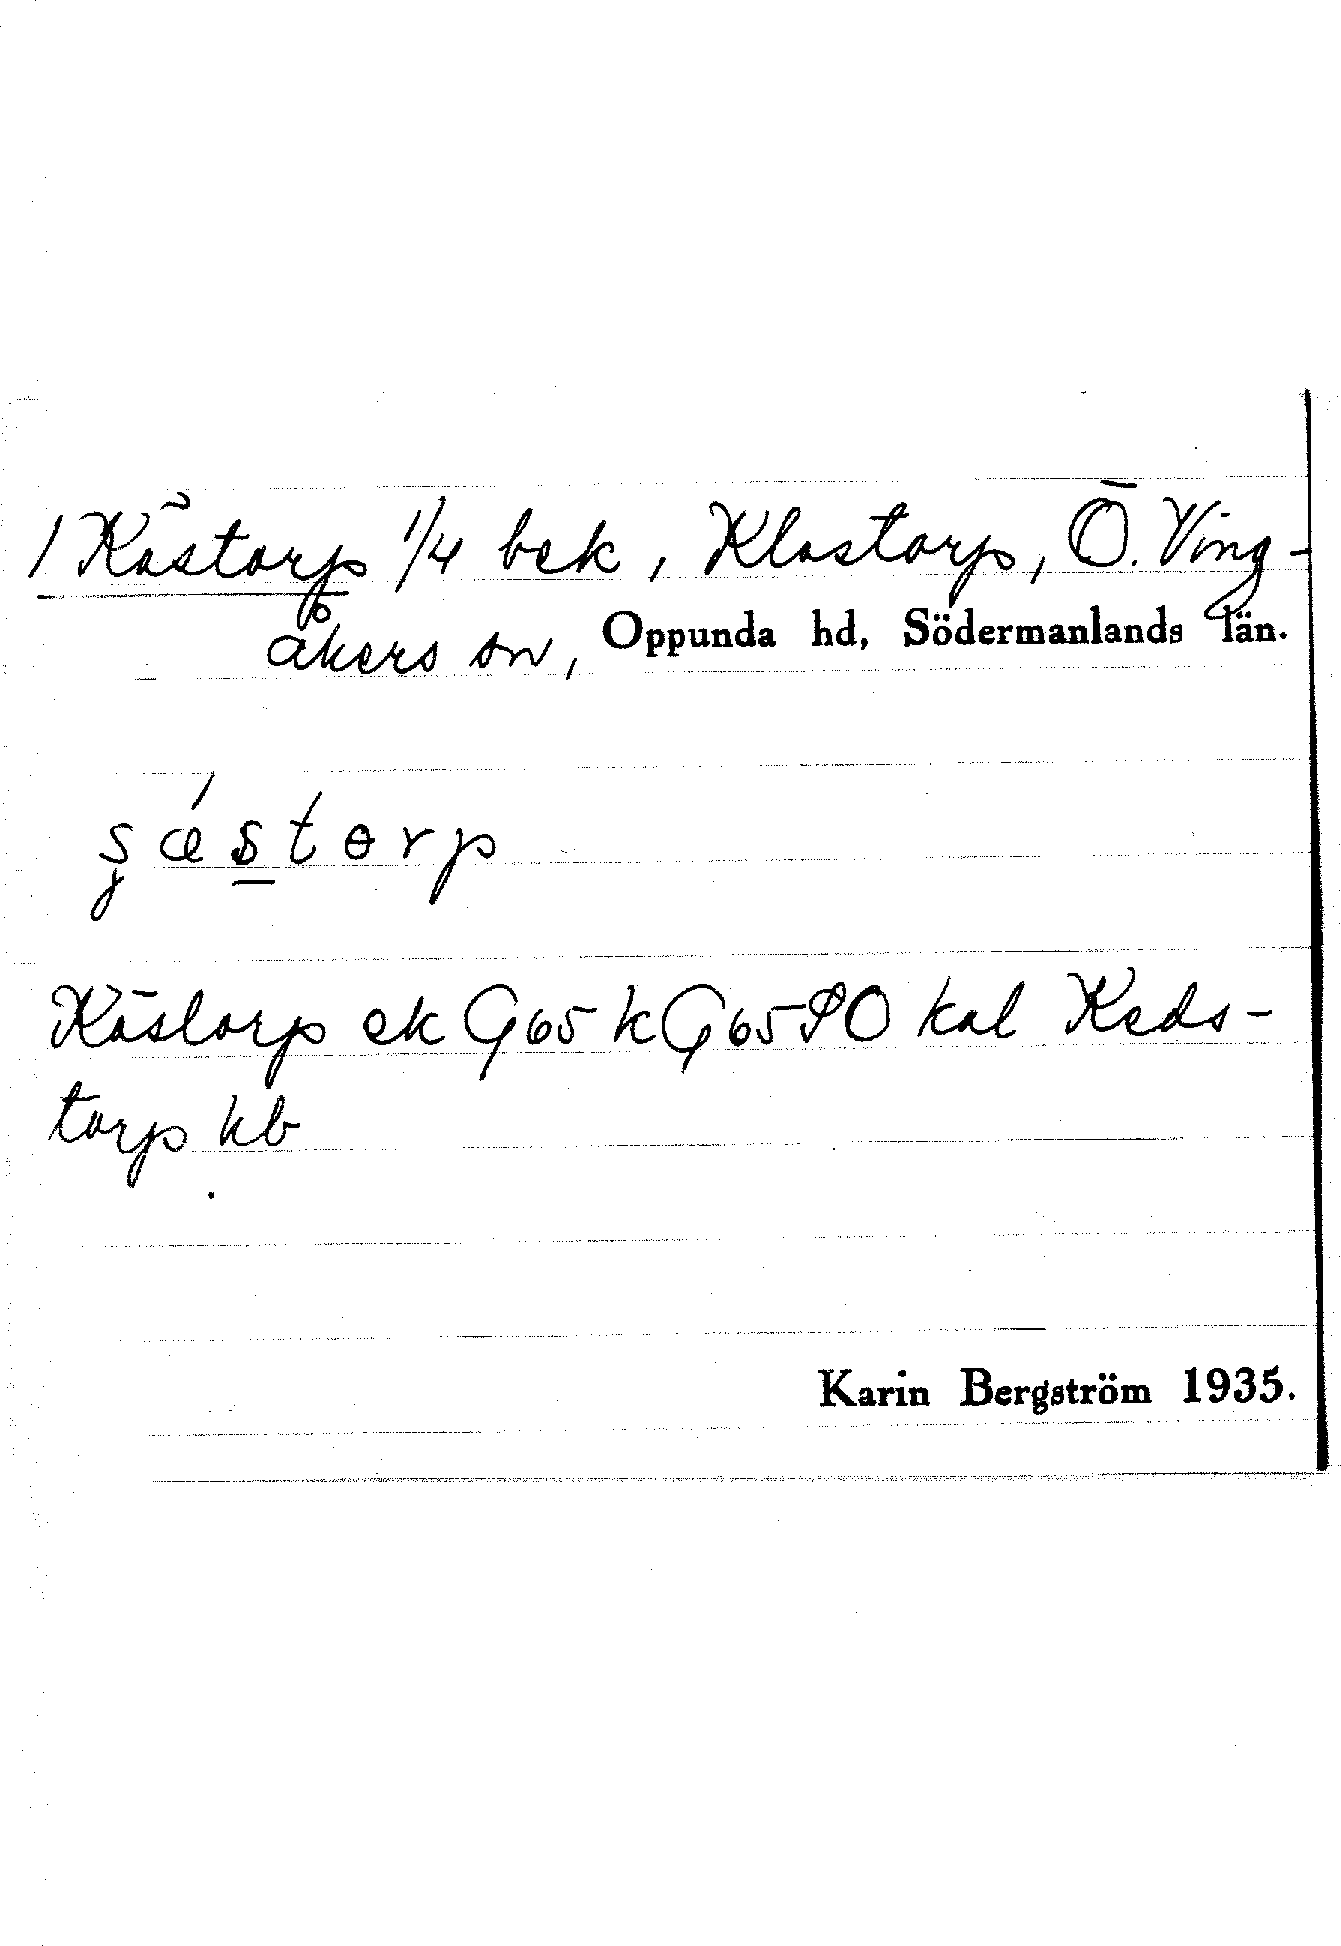 1 Kästorp 1/4 bek, Klastorp, Ö. Ving-
åkers sn, Oppunda hd, Södermanlands län.
Kästorp ek G65 kG65 PO kal Keds-
torp kb
Karin Bergström 1935.